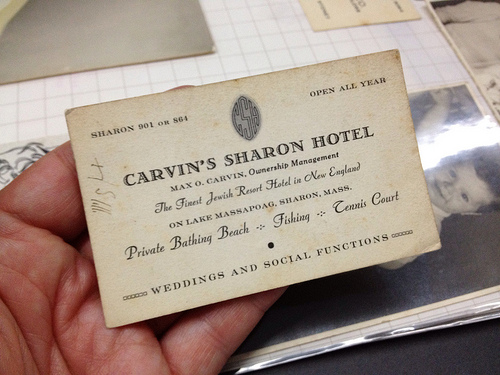 SHARON 901 OR 864
OPEN ALL YEAR
CARVIN'S SHARON HOTEL
MAX O. CARVIN, Ownership Management
The Finest Jewish Resort Hotel in New England
ON LAKE MASSAPOAG, SHARON, MASS.
Private Bathing Beach Fishing Tennis Court
WEDDINGS AND SOCIAL FUNCTIONS